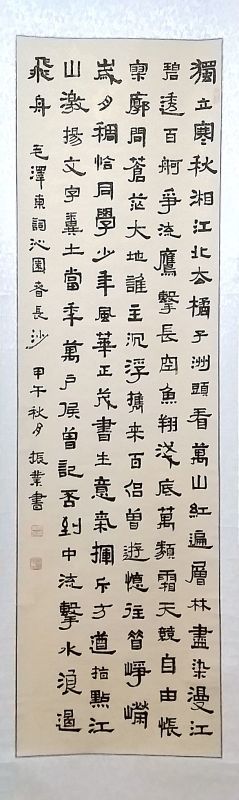 獨立寒秋湘江北去橘子洲頭看萬山紅遍層林盡染漫江
碧透百舸爭流鷹擊長空魚翔淺底萬類霜天競自由悵
寥廓問蒼茫大地誰主沉浮攜来百侣曾遊憶往昔崢嶸
歲月稠恰同學少年風華正茂書生意氣揮斥方遒指點江
山激揚文字糞土當年萬戶侯曾記否到中流擊水浪遏
飛舟 毛澤東詞沁園春長沙 甲午秋月 振業書